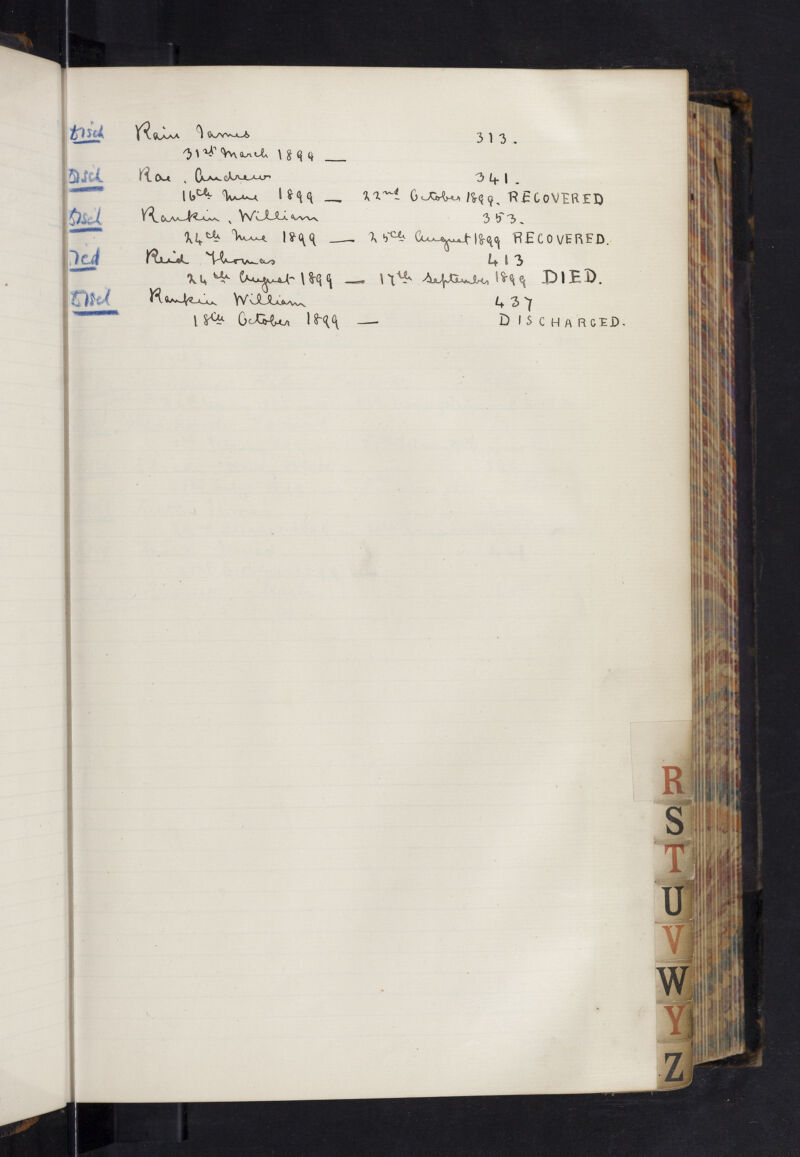 Disch Rain James 313.
31st March 1899 —
Disch Rae, Andrew 341.
16th June 1899 — 22nd October 1899. RECOVERED
Disch Rankin, William 353.
24th June 1899 — 25th August 1899 RECOVERED.
Reid Thomas 413
24th August 1899 — 17th September 1899 DIED.
Disch Rankin William 437
18th October 1899 — DISCHARGED.
R
S
T
U
V
W
Y
Z